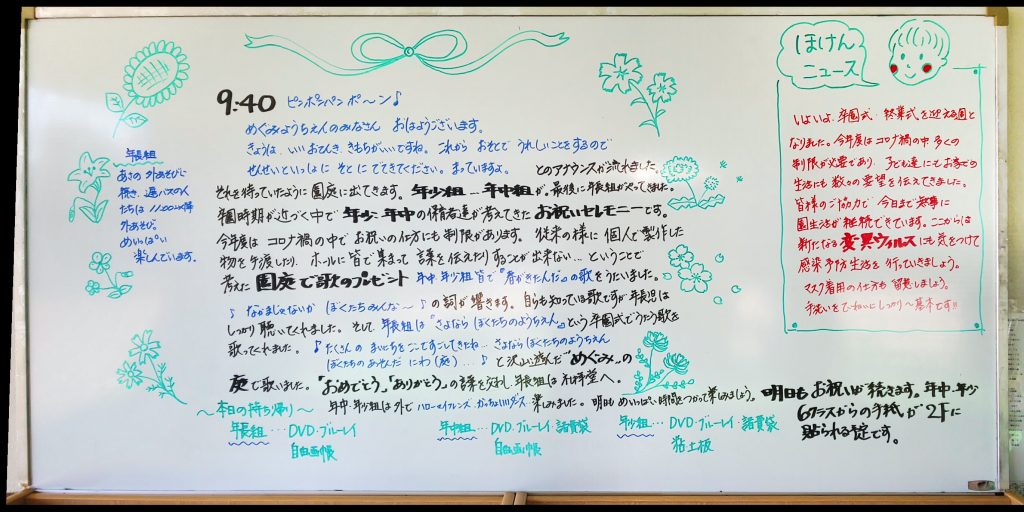 9:40 ピンポンパンポ〜ン♪
めぐみようちえんのみなさん おはようございます。
きょうは、いいおてんき、きもちがいいですね。これから おそとで うれしいことをするので
せんせいといっしょに そとに でてきてください。まっていますよ。 とのアナウンスが流れました。
それを待っていたように園庭に出てきます。年少組…年中組が、最後に年長組がやってきました。
卒園時期が近づく中で 年少、年中の保育者達が考えてきた お祝いセレモニーです。
今年度は コロナ禍の中で お祝いの仕方にも制限があります。従来の様に 個人で製作した
物を手渡したり、ホールに皆で集まって 言葉を伝えたりすることが出来ない…ということで
考えた 園庭で歌のプレゼント 年中、年少組 皆で "春がきたんだ" の歌をうたいました。
♪ なかまじゃないか ぼくたちみんな〜♪ の詞が響きます。自らも知っている歌ですが年長児は
しっかり 聴いてくれました。そして 年長組は "さよなら ぼくたちのようちえん" という卒園式でうたう歌を
歌ってくれました。♪ たくさんの まいにちを ここですごしてきたね… さよなら ぼくたちのようちえん
ぼくたちのあそんだ にわ(庭)…♪ と 沢山遊んだ "めぐみ"の
庭で歌いました。「おめでとう」「ありがとう」の言葉を交わし、年長組は 礼拝堂へ。
年中・年少組は外で ハローセイフレンズ・ 楽しみました。明日も めいっぱい 時間をつかって楽しみましょう。
〜本日の持ち帰り〜
年長組…DVD・ブルーレイ
自由画帳
年中組…DVD・ブルーレイ・諸費袋
自由画帳
年少組…DVD・ブルーレイ・諸費袋
粘土板
明日も お祝いが続きます。年中・年少
6クラスからの手紙が 2Fに
貼られる予定です。
年長組
あさの 外あそびに
続き、週バスの人
たちは 11:00以降
外あそび。
めいっぱい
楽しんでいます。
ほけん
ニュース
いよいよ、卒園式・終業式を迎える週と
なりました。今年度は コロナ禍の中、多くの
制限が必要であり、子ども達にも お家での
生活にも 数々の要望を伝えてきました。
皆様のご協力で 今日まで 無事に
園生活が 継続できています。ここからは
新たなる 変異ウィルスにも 気をつけて
感染予防生活を 行っていきましょう。
マスク着用の仕方も 留意しましょう。
手洗いをていねいにしっかり〜基本です!!